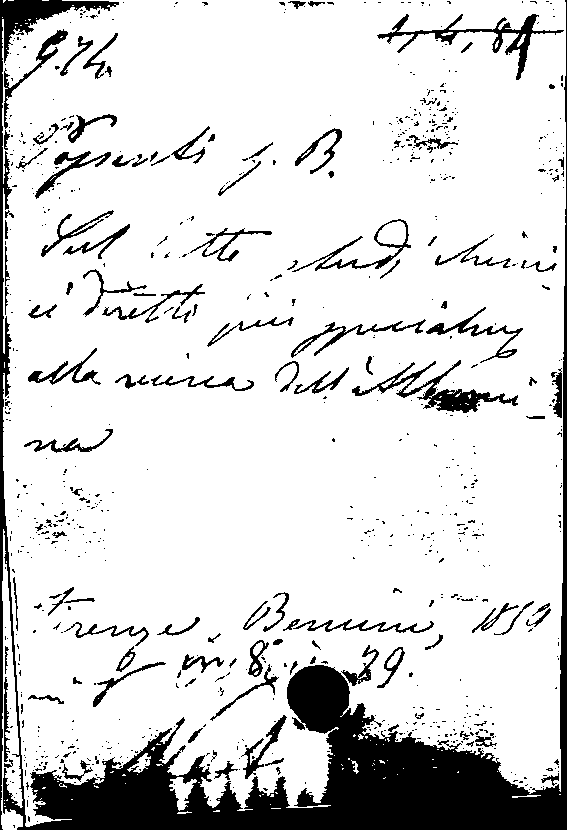 G.74. 1, 4, 84
Papanti G. B.
Sul latte studi chimi
ci diretti più specialmte
alla ricerca dell'Albumi-
na
Firenze, Bencini, 1859
in 8° 29.